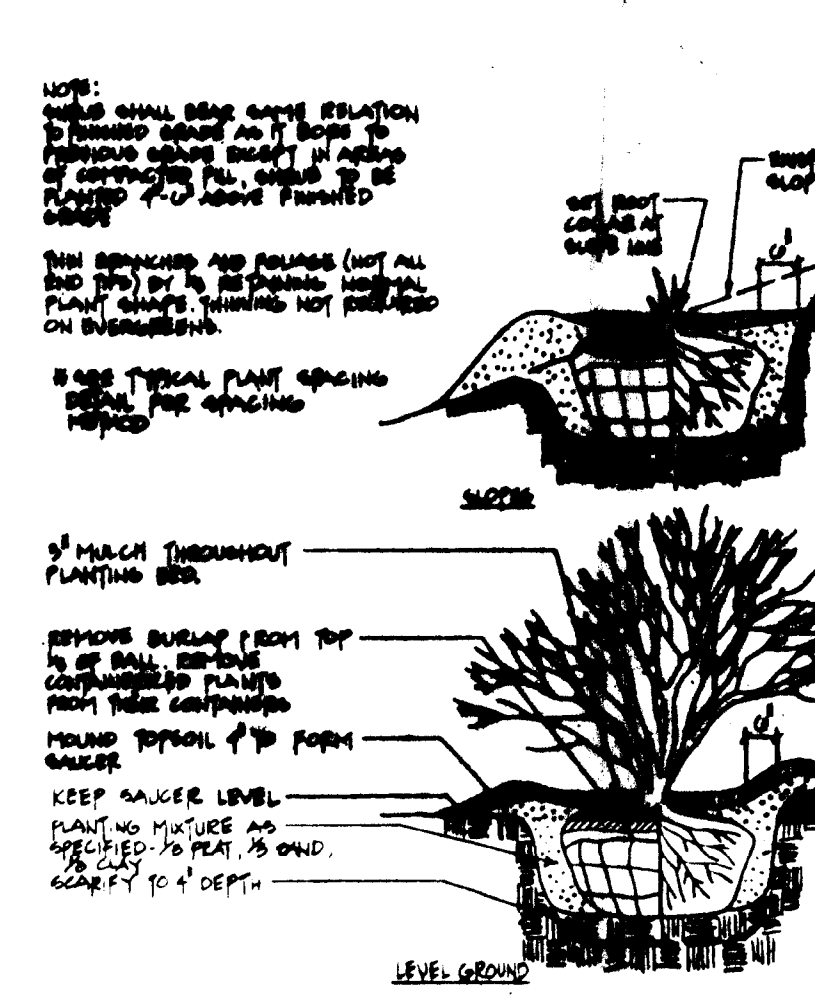 NOTE:
SHRUB SHALL BEAR SAME RELATION
TO FINISHED GRADE AS IT BORE TO
PREVIOUS GRADE EXCEPT IN AREAS
OF COMPACTED FILL, SHRUB TO BE
PLANTED 4"-6" ABOVE FINISHED
GRADE
THIN BRANCHES AND FOLIAGE (NOT ALL
END TIPS) BY 1/3 RETAINING NORMAL
PLANT SHAPE. THINNING NOT REQUIRED
ON EVERGREENS.
* SEE TYPICAL PLANT SPACING
DETAIL FOR SPACING
METHOD
SET ROOT
COLLAR AT
SLOPE LINE
SLOP
6"
SLOPES
3" MULCH THROUGHOUT
PLANTING BED.
REMOVE BURLAP FROM TOP
1/3 OF BALL. REMOVE
CONTAINERIZED PLANTS
FROM THEIR CONTAINERS
MOUND TOPSOIL 4" TO FORM
SAUCER
6"
KEEP SAUCER LEVEL
PLANTING MIXTURE AS
SPECIFIED - 1/3 PEAT, 1/3 SAND,
1/3 CLAY
SCARIFY TO 4" DEPTH
LEVEL GROUND